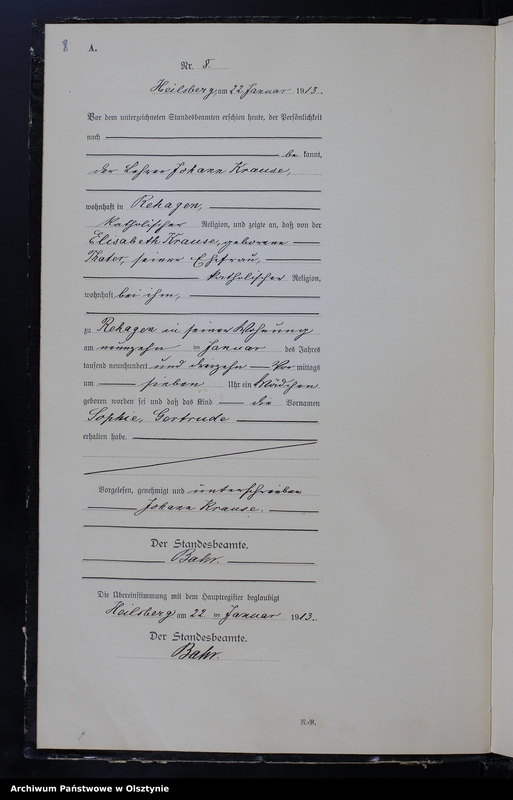 8
A.
Nr. 8.
Heilsberg, am 22. Januar 1913.
Vor dem unterzeichneten Standesbeamten erschien heute, der Persönlichkeit
nach
be kannt,
der Lehrer Johann Krause,
wohnhaft in Rehagen,
katholischer Religion, und zeigte an, daß von der
Elisabeth Krause, geborene
Thater, seiner Ehefrau,
katholischer Religion,
wohnhaft bei ihm,
zu Rehagen in seiner Wohnung
am neunzehn ten Januar des Jahres
tausend neunhundert und dreizehn Vor mittags
um sieben Uhr ein Mädchen
geboren worden sei und daß das Kind die Vornamen
Sophie, Gertrude
erhalten habe.
Vorgelesen, genehmigt und unterschrieben
Johann Krause.
Der Standesbeamte.
Bahr.
Die Übereinstimmung mit dem Hauptregister beglaubigt
Heilsberg am 22. ten Januar 1913.
Der Standesbeamte.
Bahr.
Archiwum Państwowe w Olsztynie